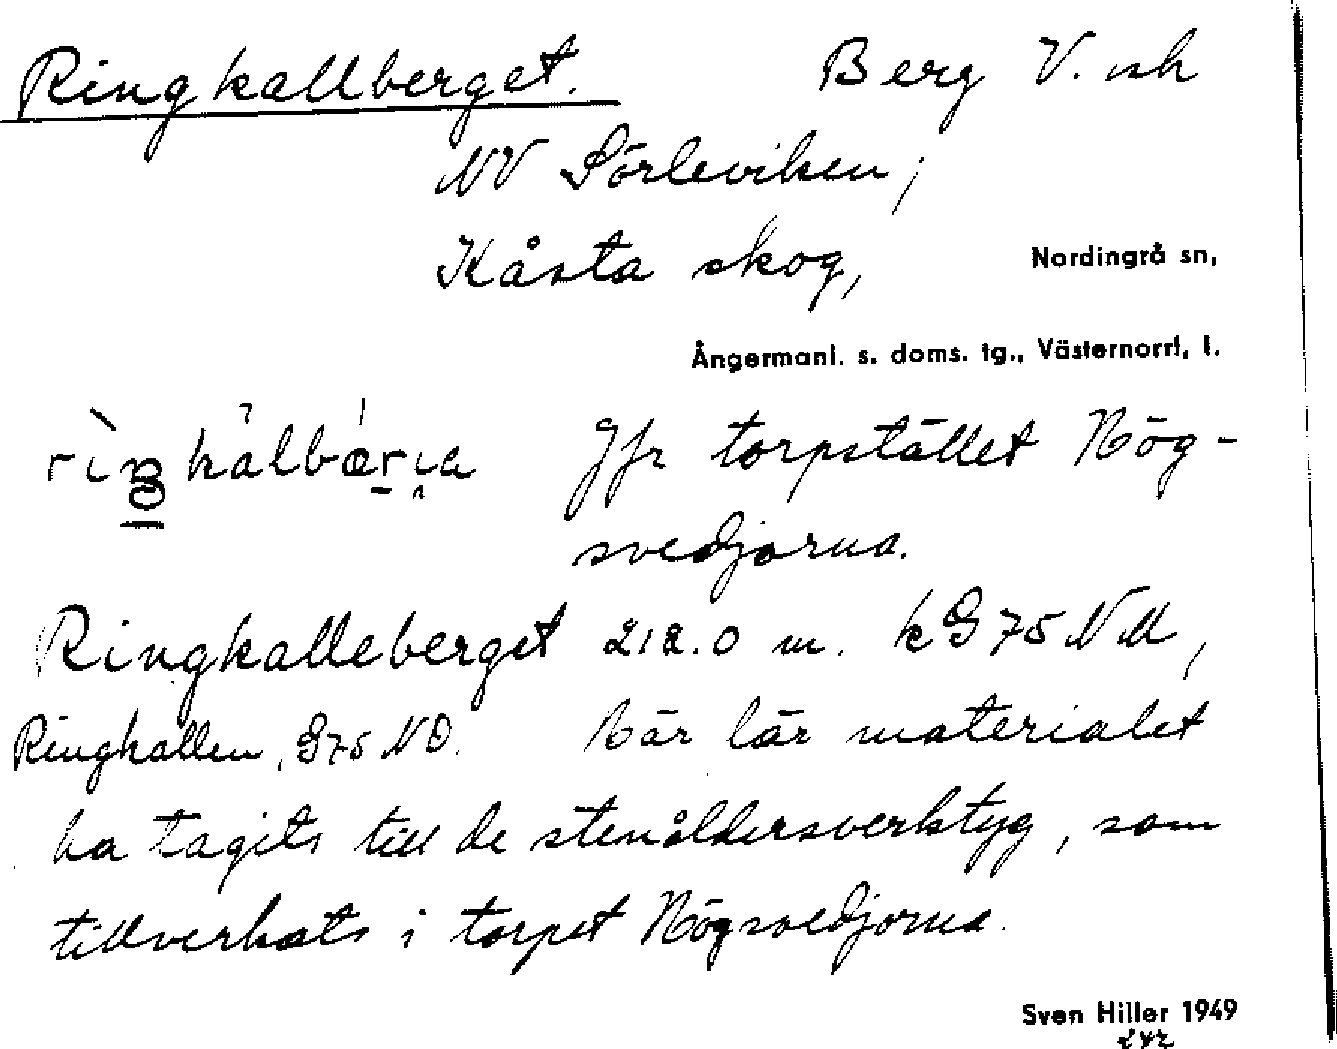 Ringkallberget. Berg V. och
NV Sörleviken,
Kåsta skog, Nordingrå sn,
Ångermanl. s. doms. tg., Västernorrl. l.
Jfr torpstället Hög-
svedjorna.
Ringkalleberget 212.0 m. k G 75 NV,
Ringkallen, G 75 NO. Här lär materialet
ha tagits till de stenåldersverktyg, som
tillverkats i torpet Högsvedjorna.
Sven Hiller 1949